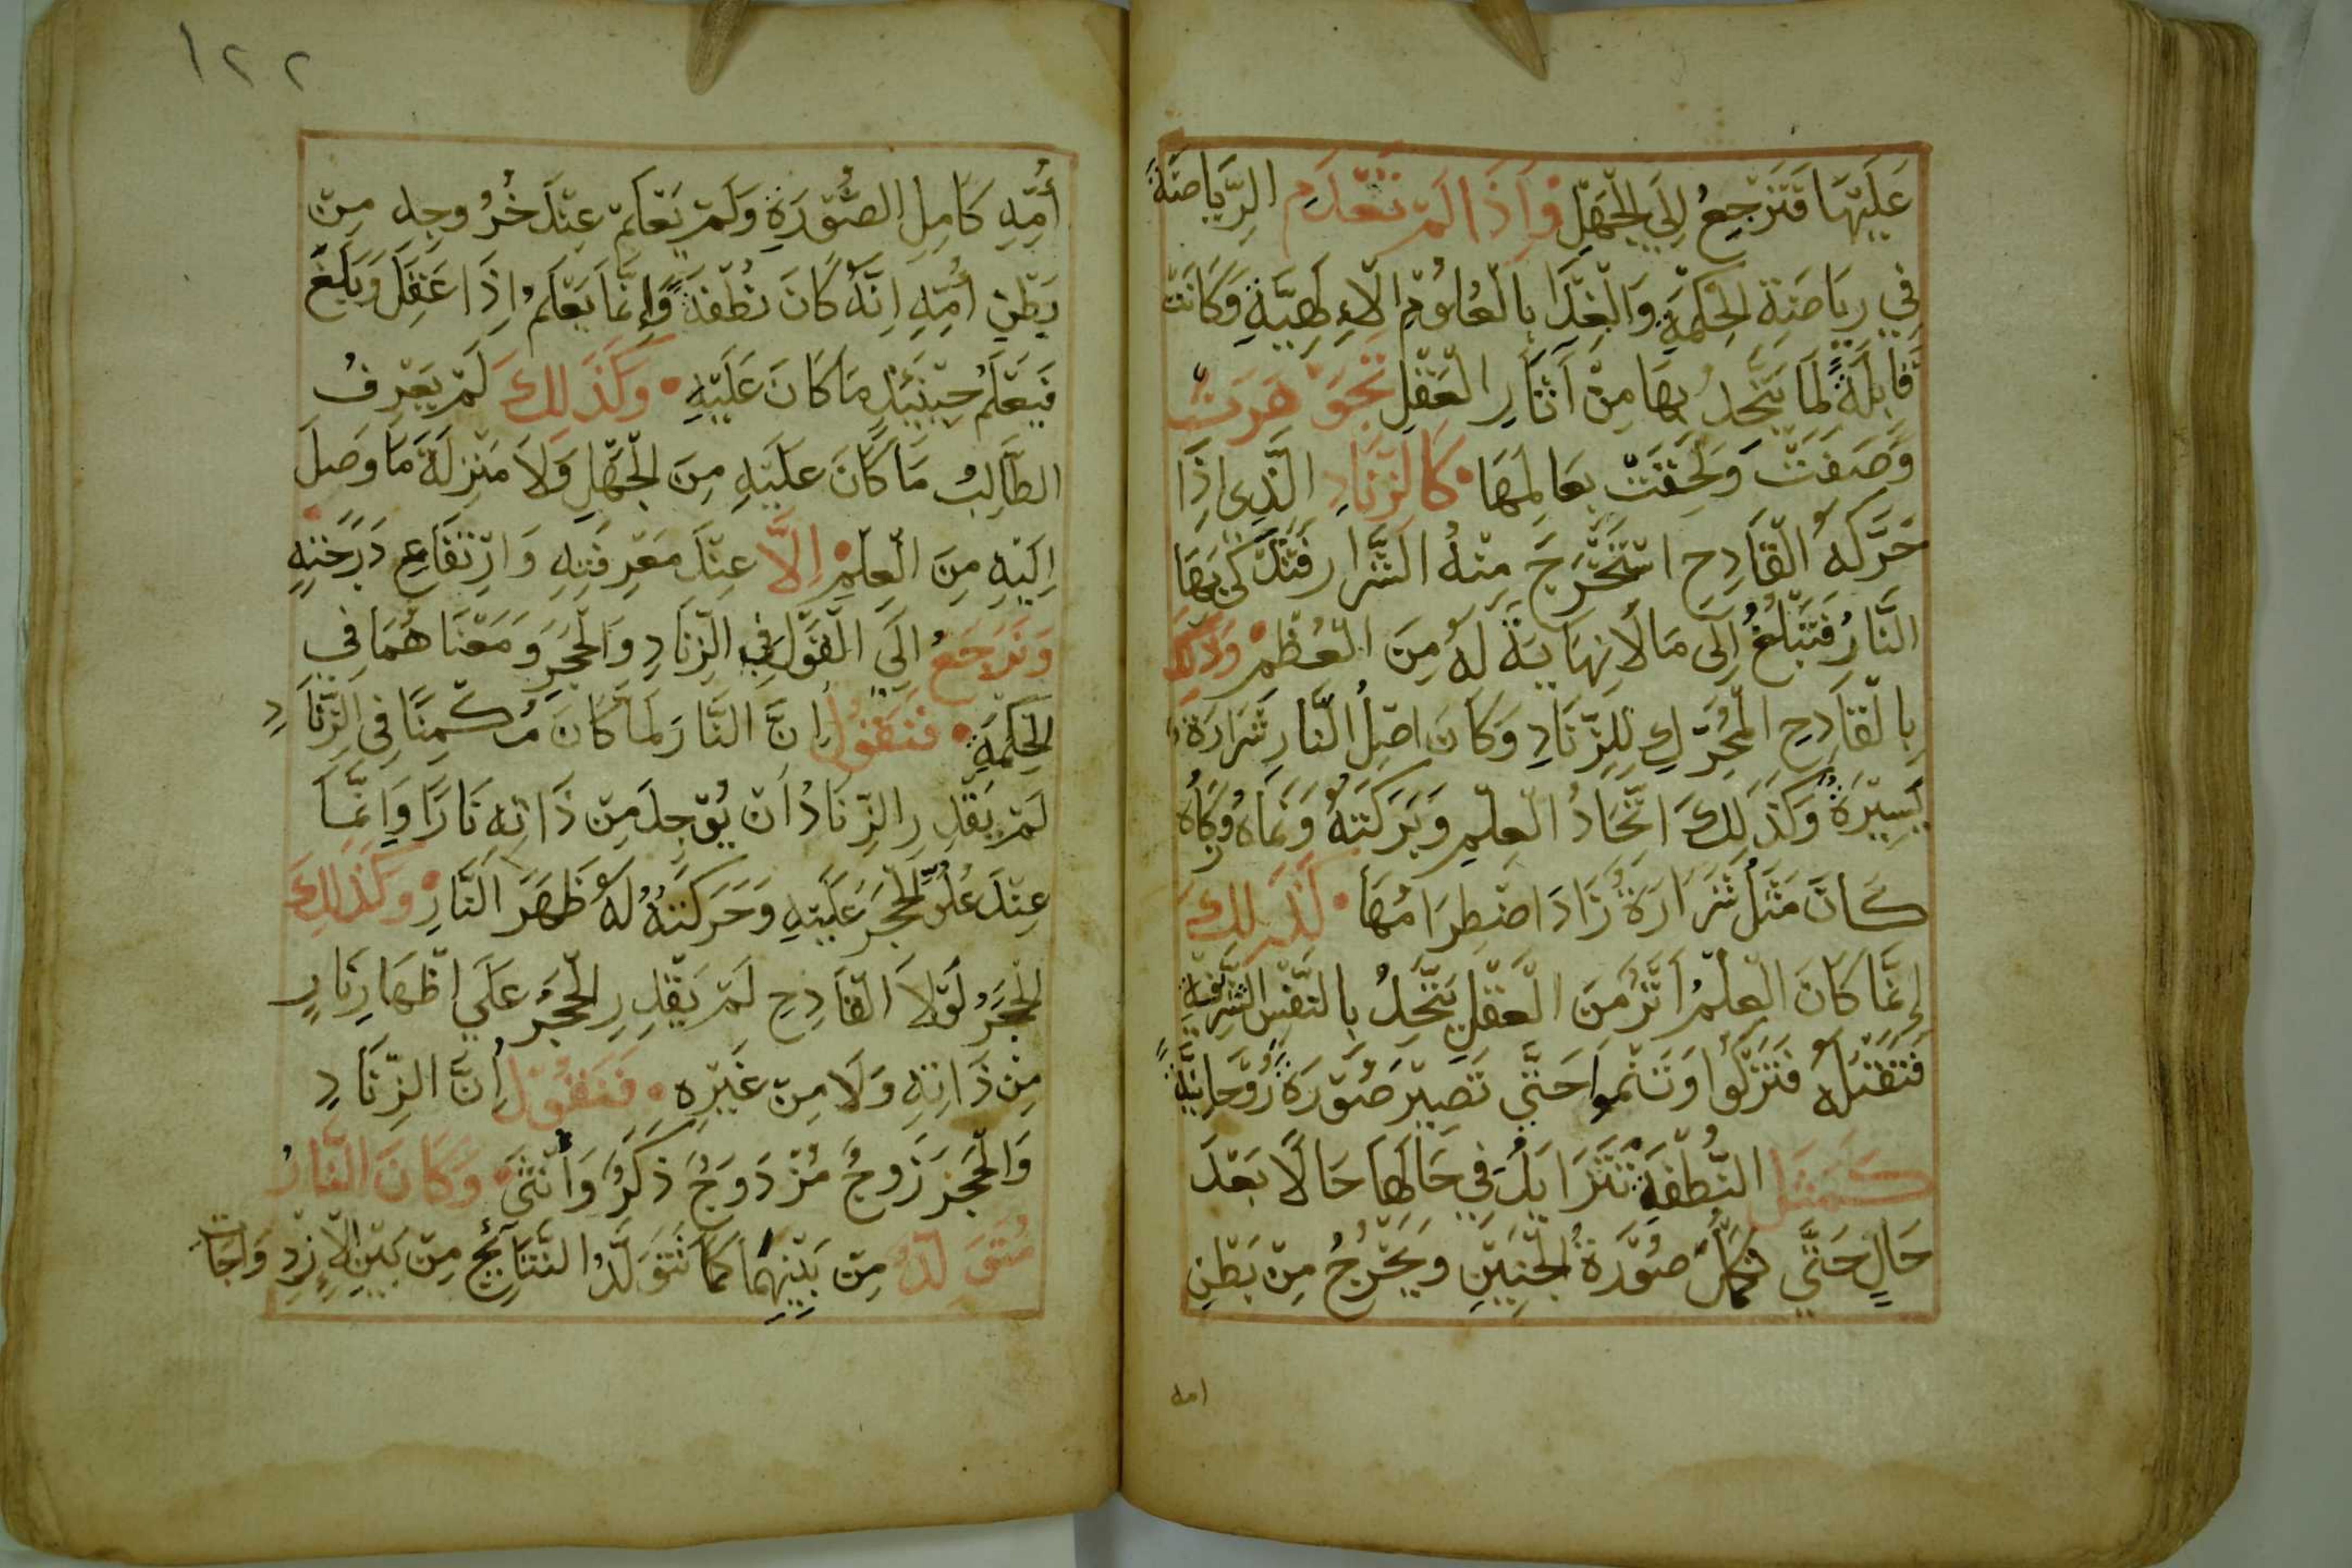 عَلَيْهَا فَتَرْجِعُ إِلَى الْجَهْلِ وَإِذَا لَمْ تَعْدَمِ الرِّيَاضَةَ
فِي رِيَاضَةِ الْحِكْمَةِ وَالْغِذَا بِالْعُلُوْمِ الْإِلَهِيَّةِ وَكَانَتْ
قَابِلَةً لِمَا يَتَّحِدُ بِهَا مِنْ آثَارِ الْعَقْلِ تَجَوْهَرَتْ
وَصَفَتْ وَلَحِقَتْ بِعَالَمِهَا • كَالزِّنَادِ الَّذِى إِذَا
حَرَّكَهُ الْقَادِحِ اسْتَخْرَجَ مِنْهُ الشَّرَارِ فَتَذَكَّى بِهَا
النَّارُ فَتَبْلُغُ إِلَى مَا لَا نِهَايَةَ لَهُ مِنَ الْعُظْمِ • وَذَلِكَ
بِالْقَادِحِ الْمُحَرِّكِ لِلزِّنَادِ وَكَانَ اصْلُ النَّارِ شَرَارَةً
يَسِيْرَةً وَكَذَلِكَ اتِّحَادُ الْعِلْمِ وَبَرَكَتُهُ وَنَمَاهُ وَزَكَاهُ
كَانَ مَثَلُ شَرَارَةً زَادَ اضْطِرَامُهَا • كَذَلِكَ
إِنَّمَا كَانَ الْعِلْمُ أَثَرٌ مِنَ الْعَقْلِ يَتَّحِدُ بِالنَّفْسِ الشَّرِيْفَةِ
فَتَقْبَلُهُ فَتَزْكُوا وَتَنْمُوا حَتَّى تَصِيْرَ صُوْرَةً رُوْحَانِيَّةً
كَمَثَلِ النُّطْفَةِ تَتَزَايَدُ فِي حَالِهَا حَالًا بَعْدَ
حَالٍ حَتَّى تَكْمُلَ صُوْرَةُ الْجَنِيْنِ وَيَخْرُجُ مِنْ بَطْنِ
امه
١٢٢
أُمِّهِ كَامِلِ الصُّوْرَةِ وَلَمْ يَعْلَمْ عِنْدَ خُرُوجِهِ مِنْ
بَطْنِ أُمِّهِ اِنَّهُ كَانَ نُطْفَةً وَإِنَّمَا يَعْلَمُ إِذَا عَقِلَ وَبَلَغَ
فَيَعْلَمُ حِيْنَئِذٍ مَا كَانَ عَلَيْهِ • وَكَذَلِكَ لَمْ يَعْرِفُ
الطَّالِبُ مَا كَانَ عَلَيْهِ مِنَ الْجَهْلِ وَلَا مَنْزِلَةَ مَا وَصَلَ
اِلَيْهِ مِنَ الْعِلْمِ • اِلَّا عِنْدَ مَعْرِفَتِهِ وَارْتِفَاعِ دَرَجَتِهِ •
وَنَرْجَعُ اِلَى الْقَوْلِ فِي الزِّنَادِ وَالْحَجَرِ وَمَعْنَاهُمَا فِي
الْحِكْمَةِ • فَنَقُوْلُ إِنَّ النَّارَ لَمَا كَانَ مُكْمِنًا فِى الزِّنَادِ
لَمْ يَقْدِرِ الزِّنَادُ اَنْ يُوْجِدَ مِنْ ذَاتِهِ نَارًا وَاِنَّمَا
عِنْدَ عُلُوِّ الْحَجَرِ عَلَيْهِ وَحَرَكَتُهُ لَهُ ظَهَرَ النَّارِ • وَكَذَلِكَ
الْحَجَرُ لَوْلَا الْقَادِحِ لَمْ يَقْدِرِ الْحَجَرُ عَلَى اظْهَارِ نَارٍ
مِنْ ذَاتِهِ وَلَا مِنْ غَيْرِهِ • فَنَقُوْلُ إِنَّ الزِّنَادِ
وَالْحَجَرِ زَوْجٌ مُزْدَوَجٌ ذَكَرٌ وَأُنْثَى • وَكَانَ النَّارُ
مُتَوَلِّدُ مِنْ بَيْنِهِمَا كَمَا تَتَوَلَّدُ النَّتَائِجُ مِنْ بَيْنِ الْإِزْدِوَاجَاتِ